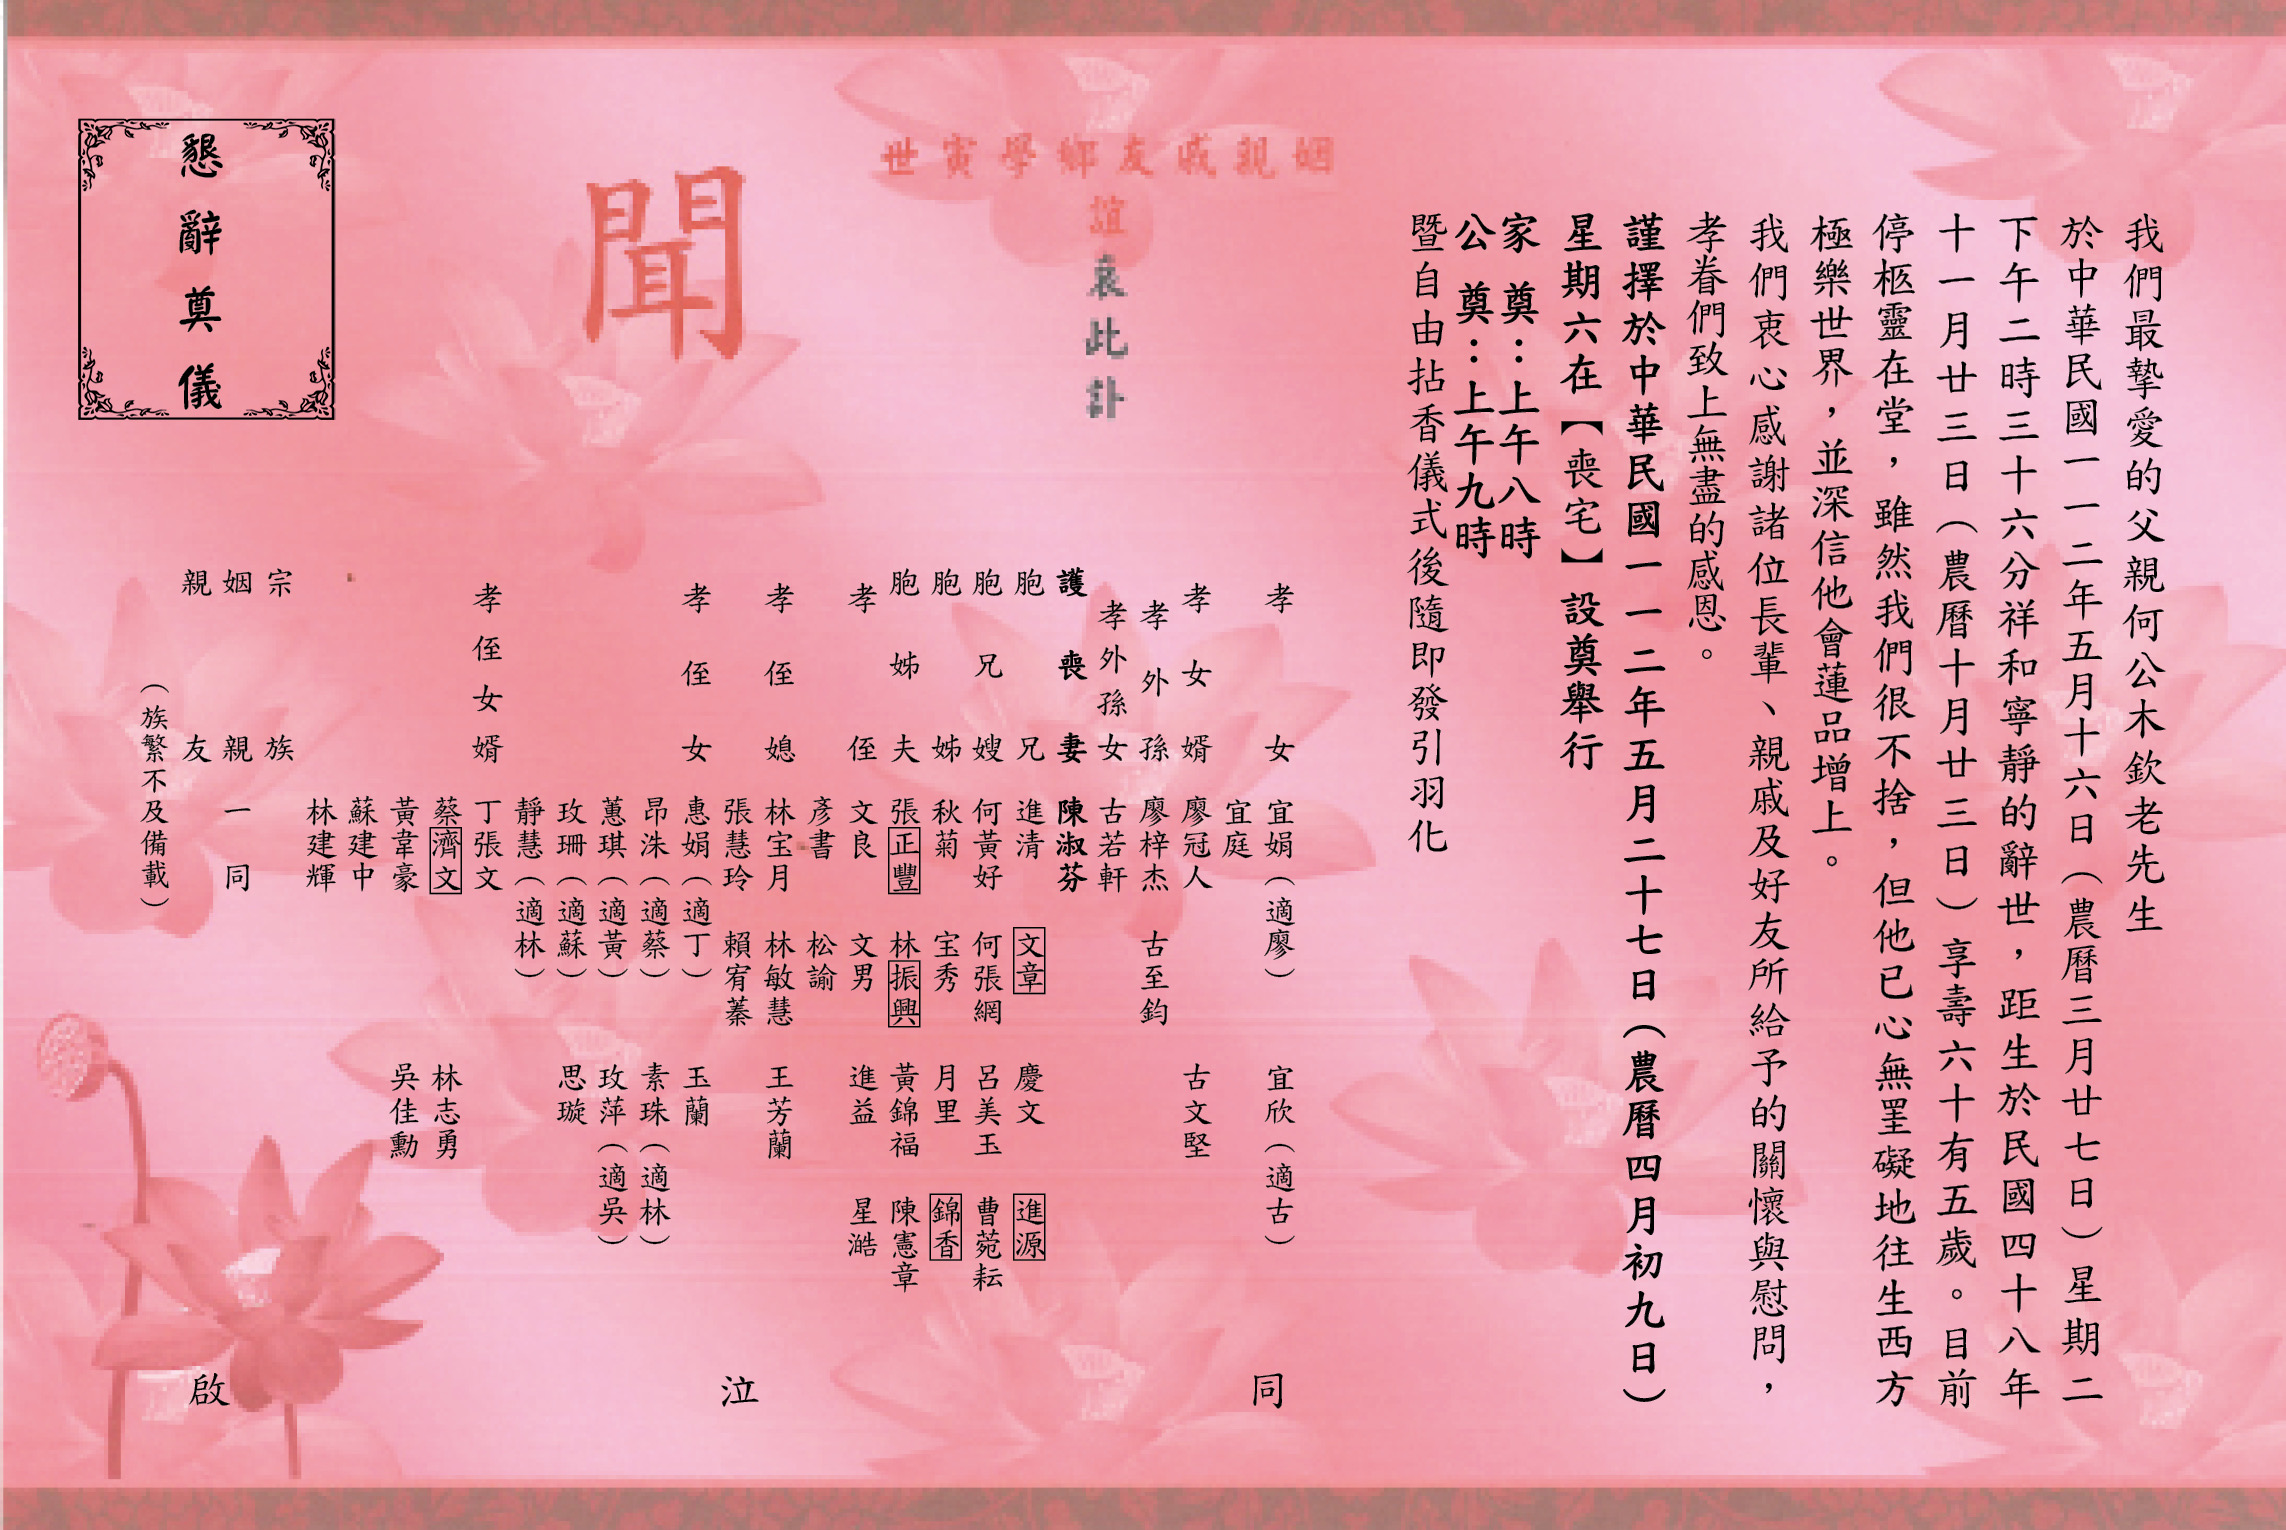 我們最摯愛的父親何公木欽老先生
於中華民國一一二年五月十六日（農曆三月廿七日）星期二
下午二時三十六分祥和寧靜的辭世，距生於民國四十八年
十一月廿三日（農曆十月廿三日）享壽六十有五歲。目前
停柩靈在堂，雖然我們很不捨，但他已心無罣礙地往生西方
極樂世界，並深信他會蓮品增上。
我們衷心感謝諸位長輩、親戚及好友所給予的關懷與慰問，
孝眷們致上無盡的感恩。
謹擇於中華民國一一二年五月二十七日（農曆四月初九日）
星期六在【喪宅】設奠舉行
家 奠：上午八時
公 奠：上午九時
暨自由拈香儀式後隨即發引羽化
姻親戚友鄉學寅世
誼哀此訃
聞
懇辭奠儀
孝女 宜娟（適廖） 宜欣（適古）
宜庭
孝女婿 廖冠人 古文堅
孝外孫 廖梓杰 古至鈞
孝外孫女 古若軒
護喪妻 陳淑芬
胞兄 進清 文章 慶文 進源
胞兄嫂 何黃好 何張網 呂美玉 曹菀耘
胞姊 秋菊 宝秀 月里 錦香
胞姊夫 張正豐 林振興 黃錦福 陳憲章
孝侄 文良 文男 進益 星澔
彥書 松諭
孝侄媳 林宝月 林敏慧 王芳蘭
張慧玲 賴宥蓁
孝侄女 惠娟（適丁） 玉蘭
昂洙（適蔡） 素珠（適林）
蕙琪（適黃） 玫萍（適吳）
玫珊（適蘇） 思璇
靜慧（適林）
孝侄女婿 丁張文
蔡濟文 林志勇
黃韋豪 吳佳勳
蘇建中
林建輝
宗族
姻親一同
親友
（族繁不及備載）
同泣啟